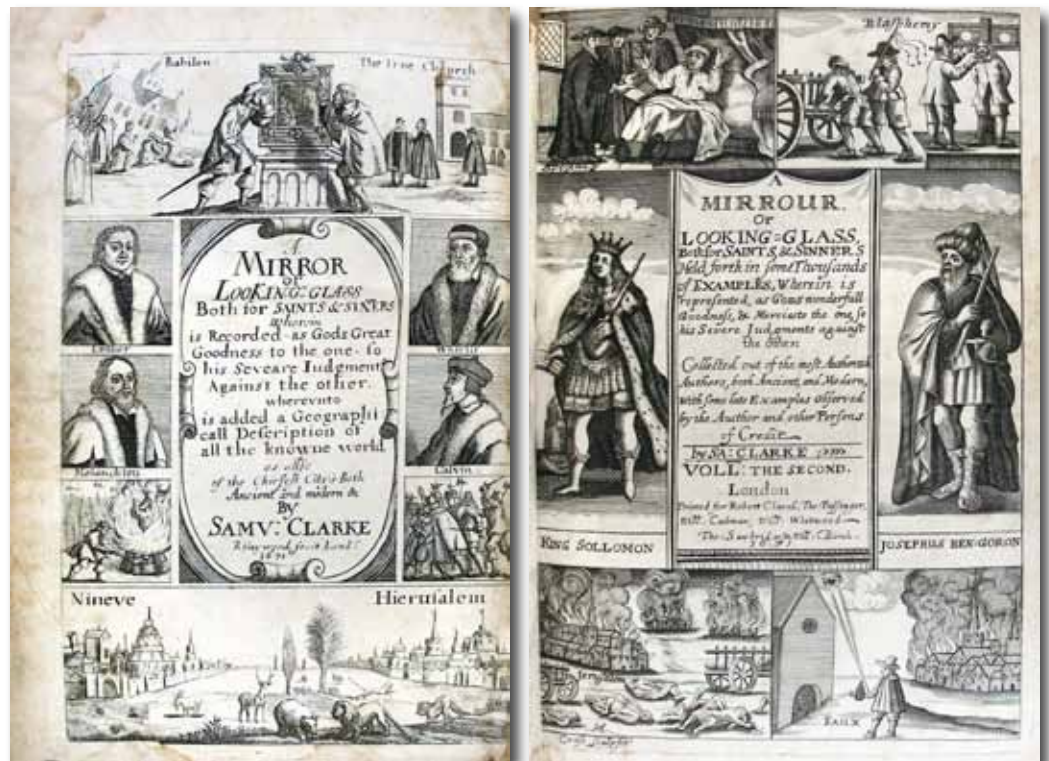 Babilon
The True Church
A
MIRROR
or
LOOKING-GLASS
Both for SAINTS & SINERS
Wherein
is Recorded as Gods Great
Goodness to the one so
his Seveare Iudgment
Against the other
wherevnto
is added a Geographi
call Description of
all the knowne world
as allso
of the Chiefest Citys Both
Ancient and modern &
By
SAMV: CLARKE
1671
Luther
Melancton
Calvin
Nineve
Hierusalem
Blasphemy
A
MIRROUR.
Or
LOOKING=GLASS,
Both for SAINTS, & SINNERS
Held forth in some Thousands
of EXAMPLES, Wherein is
represented, as Gods wonderfull
Goodness, & Mercies to the one, so
his Severe Iudgments against
the other
Collected out of the most Authentick
Authors, both Ancient, and Modern,
with some late Examples observed
by the Author and other Persons
of Credit
by SA: CLARKE
VOLL: THE SECOND.
London
Printed for Robert Clavel, Tho: Passinger,
Will: Cadman, Will: Whitwood
Tho: Sawbridge, & Will: Birch
KING SOLLOMON
JOSEPHUS BEN-GORON